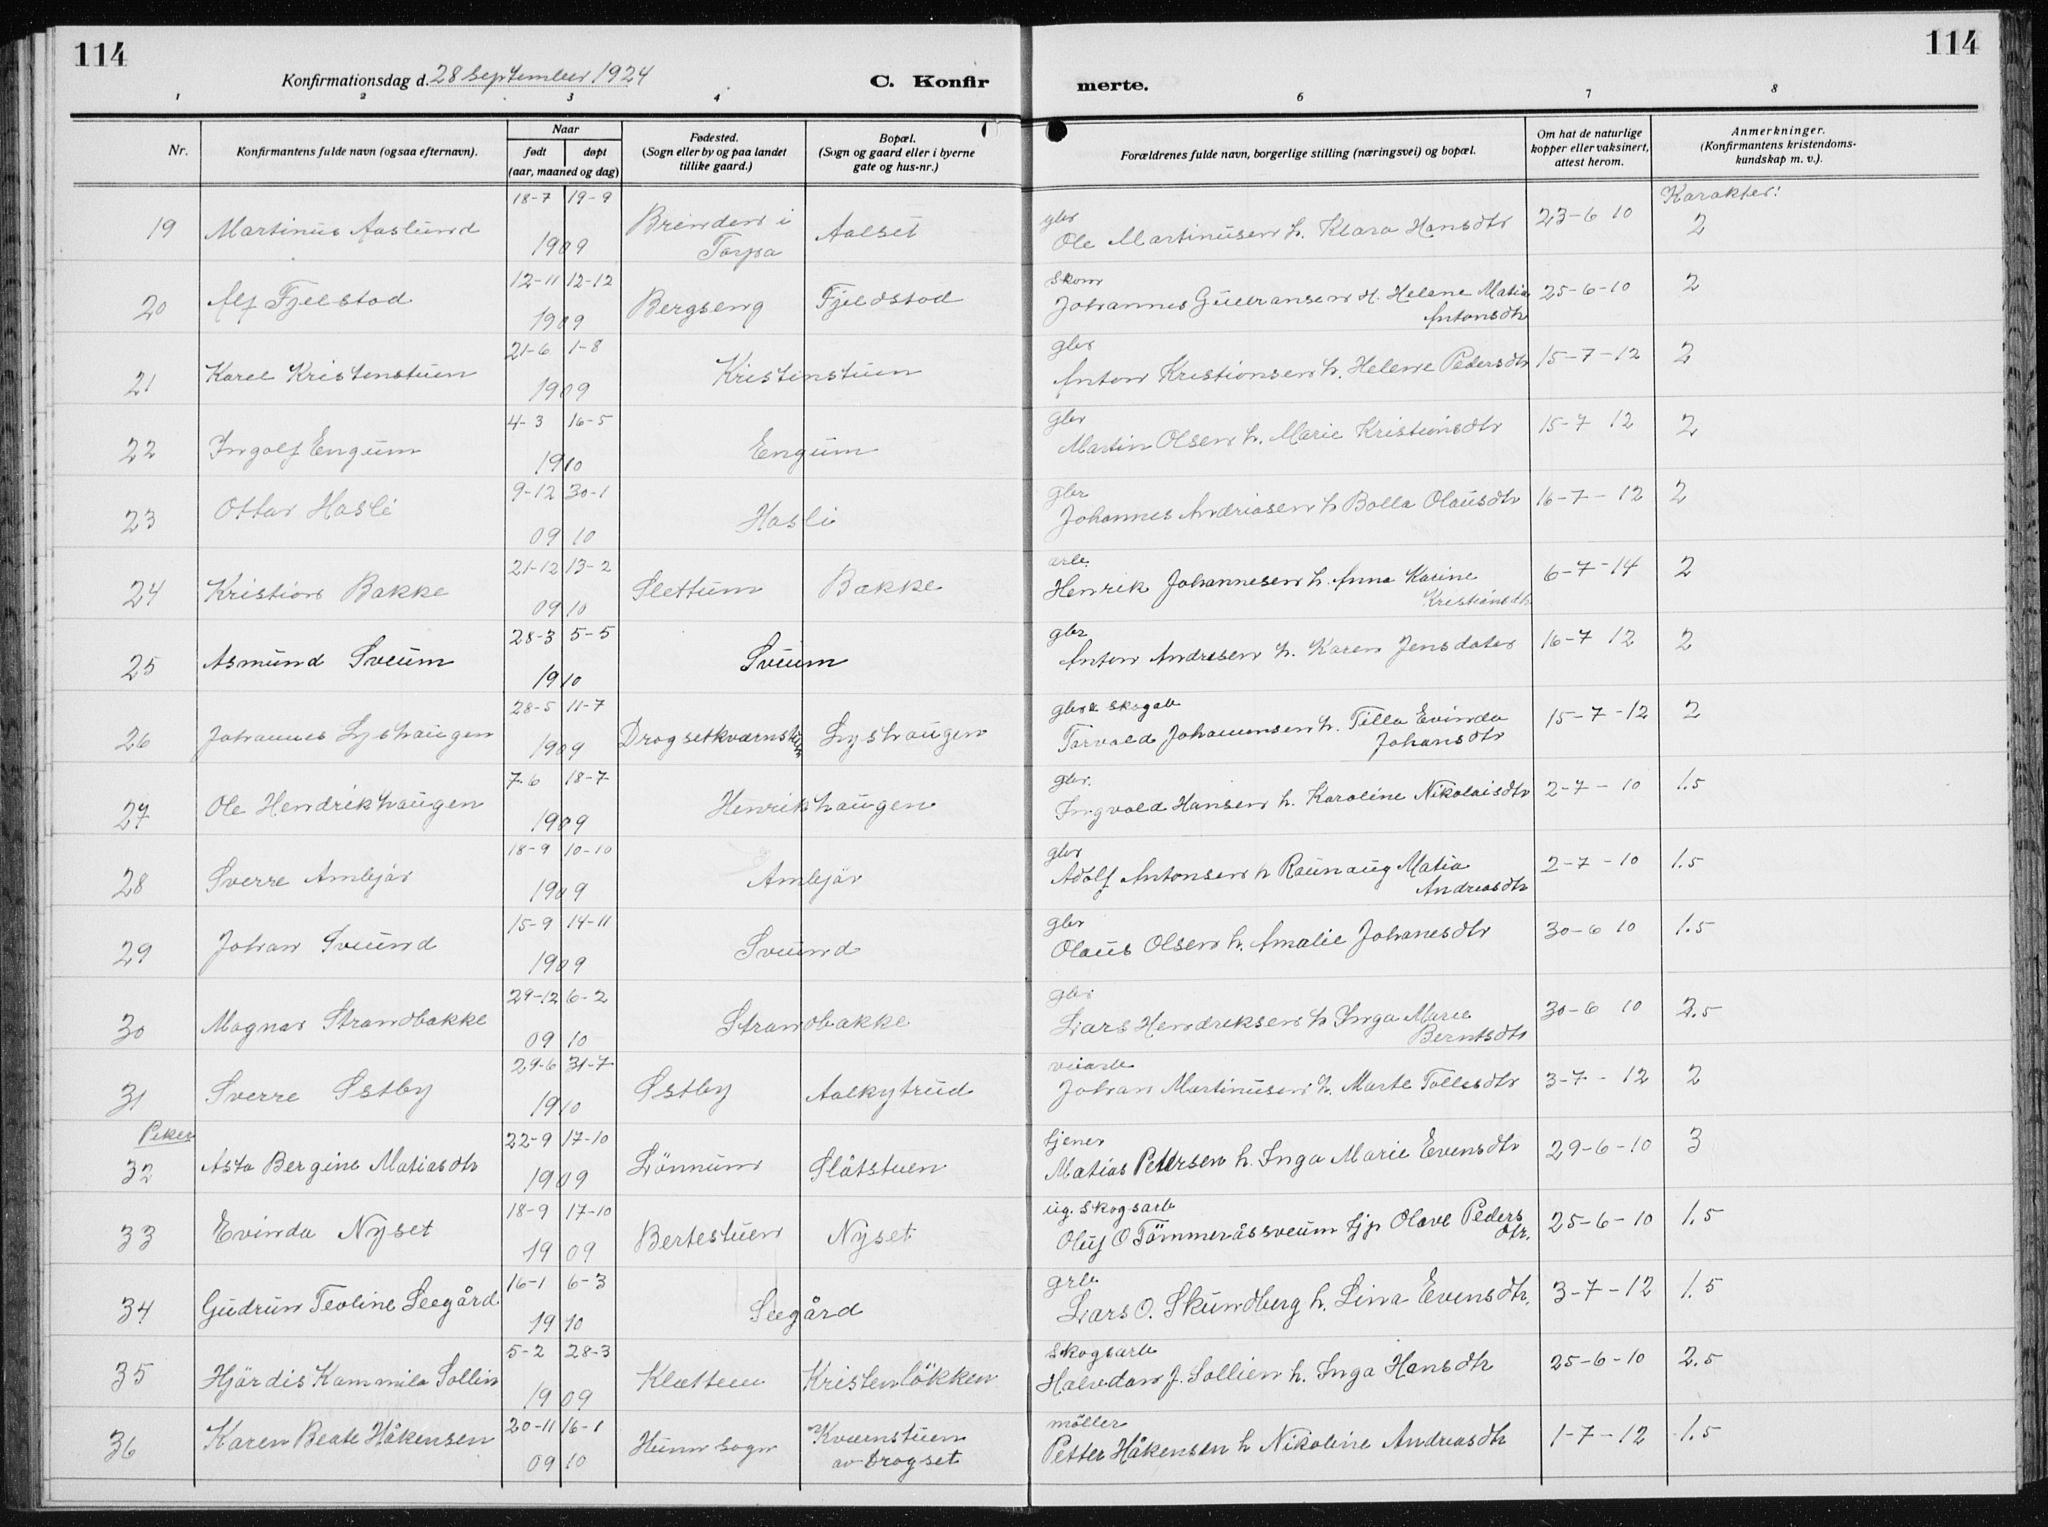 114
114
Konfirmationsdag d. 28 September 1924
C. Konfir
merte.
1 2 3 4 6 7 8
Nr.
Konfirmantens fulde navn (ogsaa efternavn).
Naar
født døpt
(aar, maaned og dag)
Fødested.
(Sogn eller by og paa landet
tillike gaard.)
Bopæl.
(Sogn og gaard eller i byerne
gate og hus-nr.)
Forældrenes fulde navn, borgerlige stilling (næringsvei) og bopæl.
Om hat de naturlige
kopper eller vaksinert,
attest herom.
Anmerkninger.
(Konfirmantens kristendoms-
kundskap m. v.).
Karakter:
18-7 19-9 gbr
19 Martinus Aaslund 1909 Brenden i Torpa Aalset Ole Martinusen h. Klara Hansdtr 23-6 10 2
12-11 12-12 Skom
20 Alf Fjelstad 1909 Bergseng Fjeldstad Johannes Gulbransen H. Helene Matia Antonsdtr 25-6-10 2
21-6 1-8 gbr
21 Karel Kristenstuen 1909 Kristinstuen Anton Kristiansen h. Helene Pedersdtr 15-7-12 2
4-3 16-5 gbr
22 Ingolf Engum 1910 Engum Martin Olsen h. Marie Kristiansdtr 15-7 12 2
9-12 30-1 gbr
23 Ottar Hasli 09 10 Hasli Johannes Andriasen h Bolla Olausdtr 16-7-12 2
21-12 13-2 arb.
24 Kristian Bakke 09 10 Slettum Bakke Henrik Johannesen h. Anna Karine Kristiansdtr 6-7-14 2
28-3 5-5 gbr
25 Asmund Sveum 1910 Sveum Anton Andresen h. Karen Jensdater 16-7 12 2
28-5 11-7
26 Johannes Lyshaugen 1909 Lyshaugen Torvald Johannensen h. Tilla Evinda Johansdtr 15-7-12 2
7-6 18-7 gbr.
27 Ole Hendrikhaugen 1909 Henrikhaugen Ingvald Hansen h. Karoline Nikolaisdtr 2-7-10 1.5
18-9 10-10 gbr
28 Sverre Ambjør 1909 Ambjør Adolf Antonsen h Raunaug Matia Andreasdtr 2-7-10 1.5
15-9 14-11 gbr
29 Johan Sveund 1909 Sveund Olaus Olsen h. Amalie Johanesdtr 30-6 10 1.5
29-12 6-2 gbr
30 Magnar Strandbakke 09 10 Strandbakke Lars Hendriksen h Inga Marie Berntsdtr 30-6 10 2.5
29-6 31-7
31 Sverre Østby 1910 Østby Aalkytrud Johan Martinusen h. Marte Tollesdtr 3-7-12 2
Piker
22-9 17-10 tjener
32 Asta Bergine Matiasdtr 1909 Lönnum Slåtstuen Matias Petersen h. Inga Marie Evensdtr 29-6-10 3
18-9 17-10 ug. Skogsarb
33 Evinda Nyset 1909 Bertestuen Nyset Oluf O Tömmeråssveum tjp Olave Peders dtr. 25-6-10 1.5
16-1 6-3
34 Gudrun Teoline Seegård 1910 Seegård Lars O. Skundberg h. Lina Evensdtr. 3-7-12 1.5
5-2 28-3 skogsarb
35 Hjördis Kammila Sollin 1909 Kristenlökken Halvdan J. Sollien h. Inga Hansdtr 25-6-10 2.5
20-11 16-1 møller
36 Karen Beate Håkensen 09 10 Hunn sogn Kværnstuen av Drogset Petter Håkensen h Nikoline Andreasdtr 1-7-12 1.5